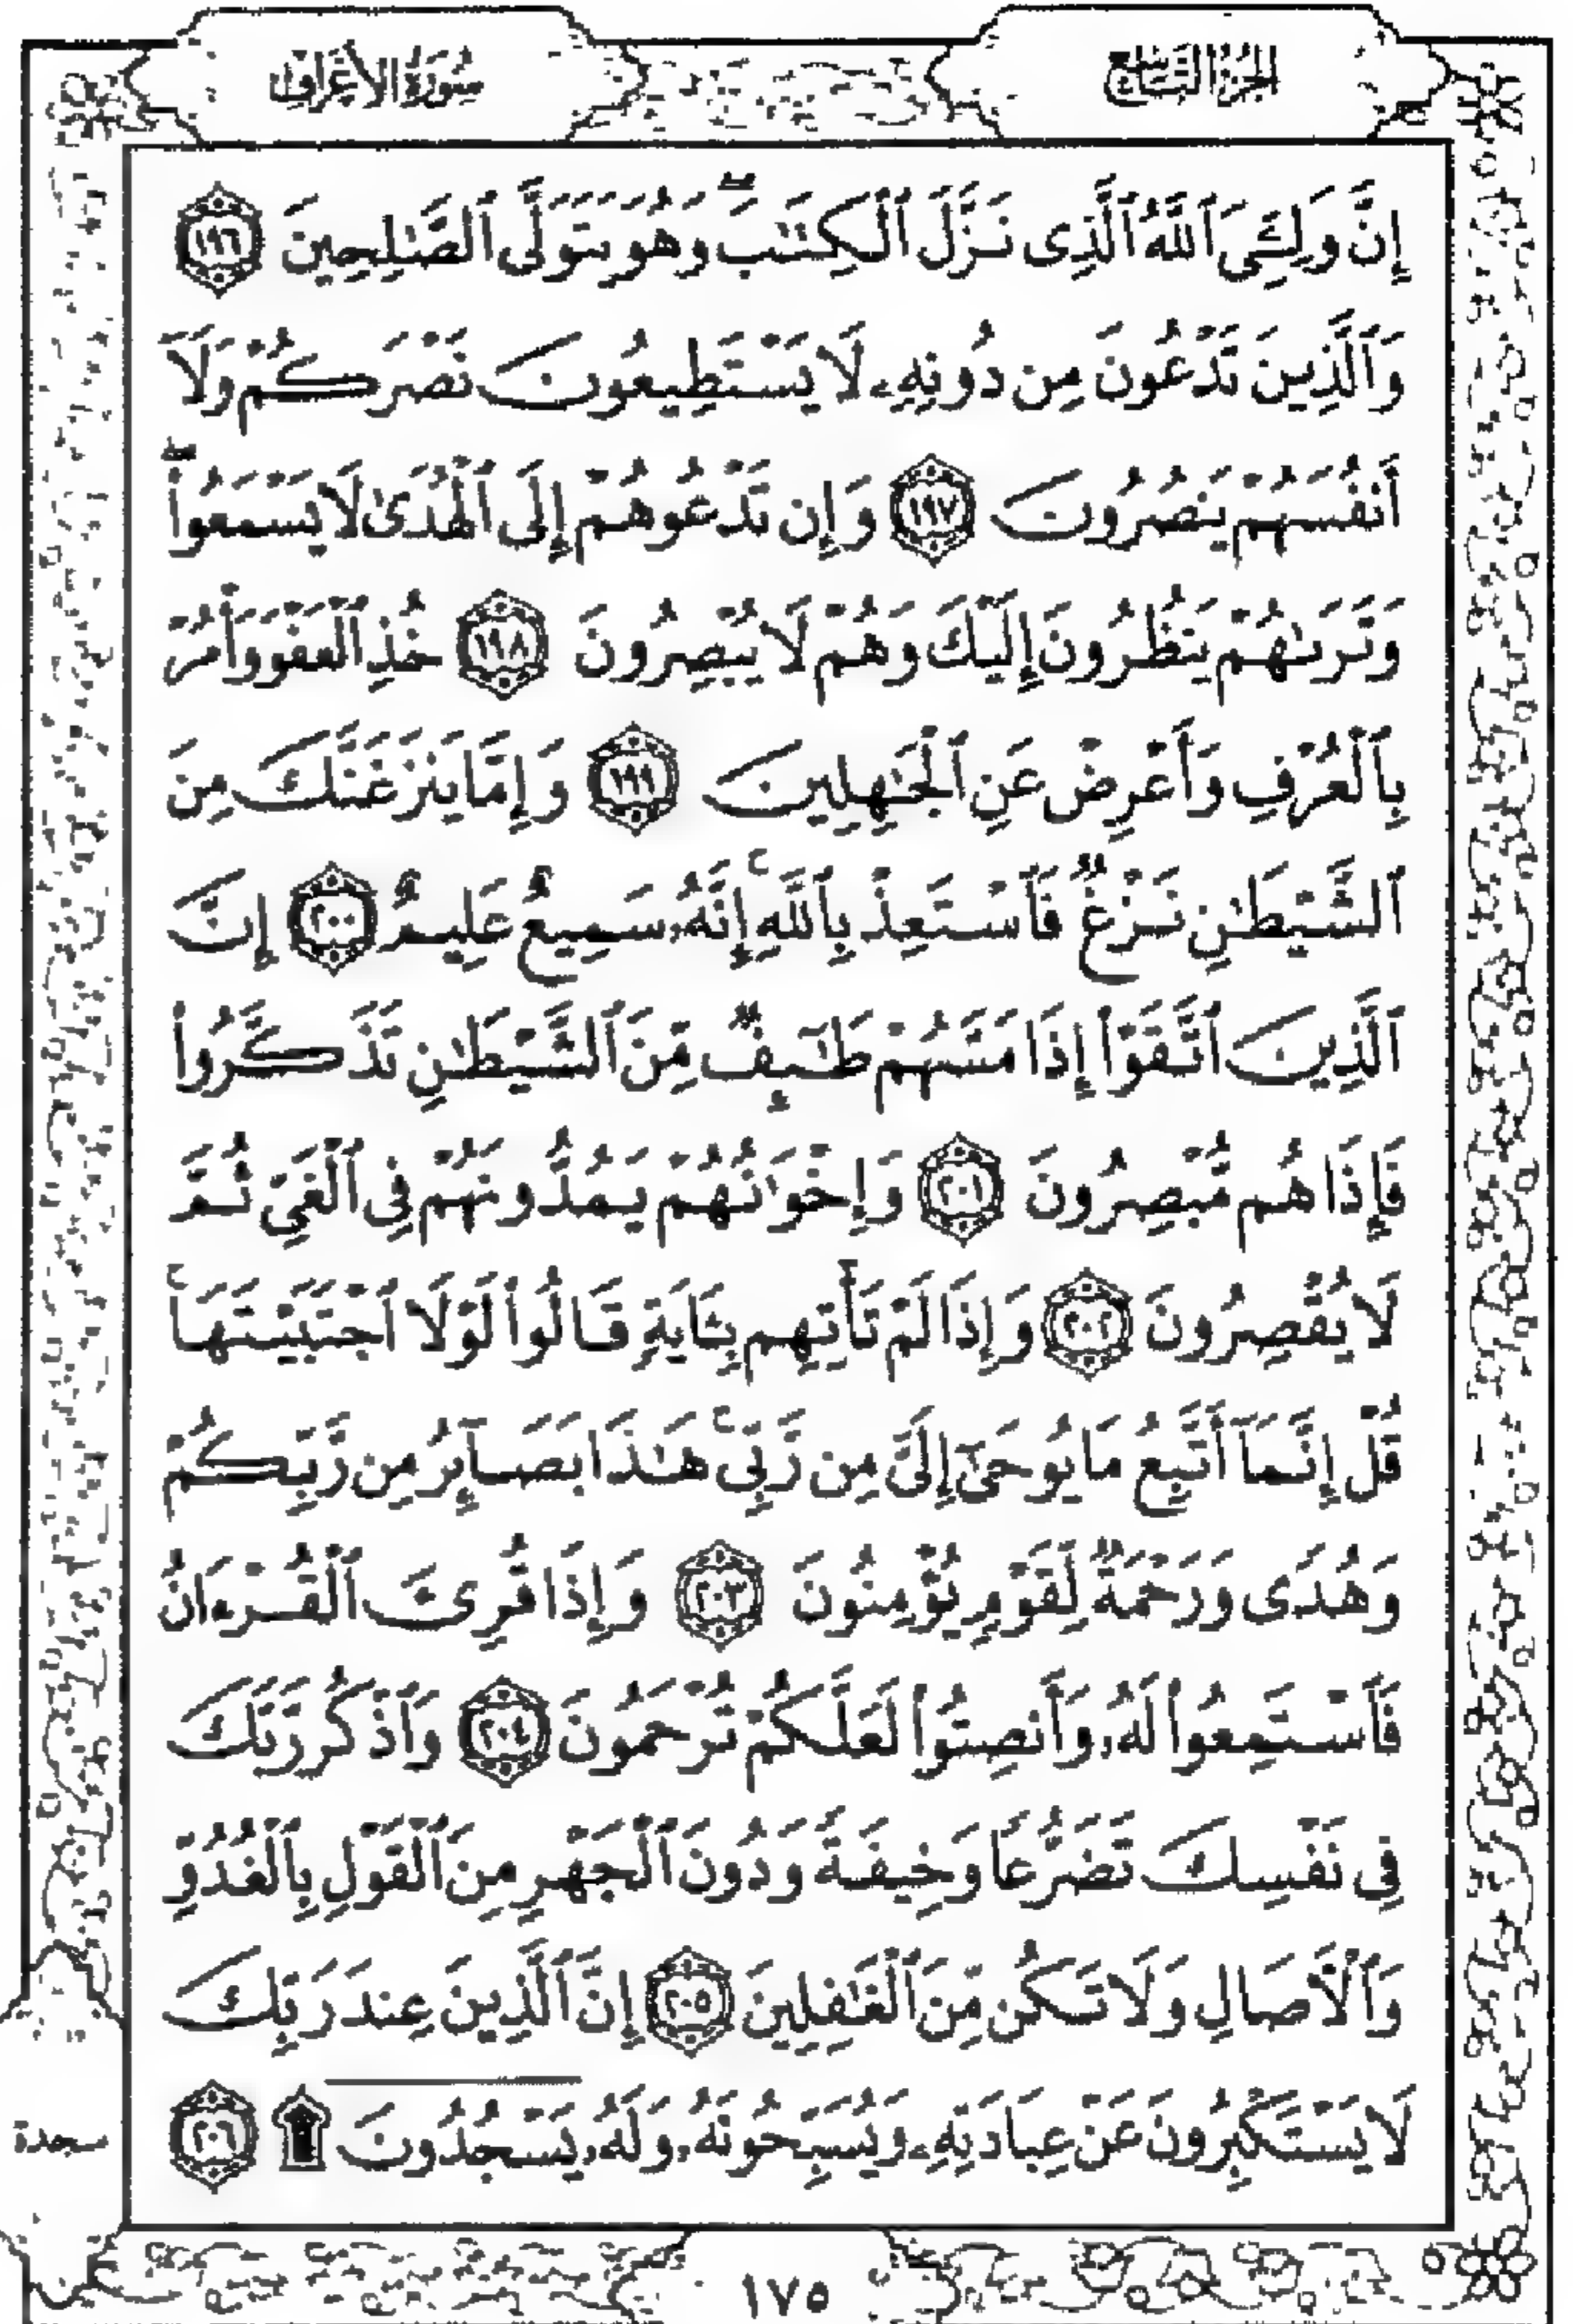 الجزء التاسع
سورة الأعراف
إِنَّ وَلِـِّۧىَ ٱللَّهُ ٱلَّذِى نَزَّلَ ٱلْكِتَـٰبَ ۖ وَهُوَ يَتَوَلَّى ٱلصَّـٰلِحِينَ ١٩٦
وَٱلَّذِينَ تَدْعُونَ مِن دُونِهِۦ لَا يَسْتَطِيعُونَ نَصْرَكُمْ وَلَآ
أَنفُسَهُمْ يَنصُرُونَ ١٩٧ وَإِن تَدْعُوهُمْ إِلَى ٱلْهُدَىٰ لَا يَسْمَعُوا۟ ۖ
وَتَرَىٰهُمْ يَنظُرُونَ إِلَيْكَ وَهُمْ لَا يُبْصِرُونَ ١٩٨ خُذِ ٱلْعَفْوَ وَأْمُرْ
بِٱلْعُرْفِ وَأَعْرِضْ عَنِ ٱلْجَـٰهِلِينَ ١٩٩ وَإِمَّا يَنزَغَنَّكَ مِنَ
ٱلشَّيْطَـٰنِ نَزْغٌ فَٱسْتَعِذْ بِٱللَّهِ ۚ إِنَّهُۥ سَمِيعٌ عَلِيمٌ ٢٠٠ إِنَّ
ٱلَّذِينَ ٱتَّقَوْا۟ إِذَا مَسَّهُمْ طَـٰٓئِفٌ مِّنَ ٱلشَّيْطَـٰنِ تَذَكَّرُوا۟
فَإِذَا هُم مُّبْصِرُونَ ٢٠١ وَإِخْوَٰنُهُمْ يَمُدُّونَهُمْ فِى ٱلْغَىِّ ثُمَّ
لَا يُقْصِرُونَ ٢٠٢ وَإِذَا لَمْ تَأْتِهِم بِـَٔايَةٍ قَالُوا۟ لَوْلَا ٱجْتَبَيْتَهَا ۚ
قُلْ إِنَّمَآ أَتَّبِعُ مَا يُوحَىٰٓ إِلَىَّ مِن رَّبِّى ۚ هَـٰذَا بَصَآئِرُ مِن رَّبِّكُمْ
وَهُدًى وَرَحْمَةٌ لِّقَوْمٍ يُؤْمِنُونَ ٢٠٣ وَإِذَا قُرِئَ ٱلْقُرْءَانُ
فَٱسْتَمِعُوا۟ لَهُۥ وَأَنصِتُوا۟ لَعَلَّكُمْ تُرْحَمُونَ ٢٠٤ وَٱذْكُر رَّبَّكَ
فِى نَفْسِكَ تَضَرُّعًا وَخِيفَةً وَدُونَ ٱلْجَهْرِ مِنَ ٱلْقَوْلِ بِٱلْغُدُوِّ
وَٱلْـَٔاصَالِ وَلَا تَكُن مِّنَ ٱلْغَـٰفِلِينَ ٢٠٥ إِنَّ ٱلَّذِينَ عِندَ رَبِّكَ
لَا يَسْتَكْبِرُونَ عَنْ عِبَادَتِهِۦ وَيُسَبِّحُونَهُۥ وَلَهُۥ يَسْجُدُونَ ۩ ٢٠٦
سجدة
١٧٥